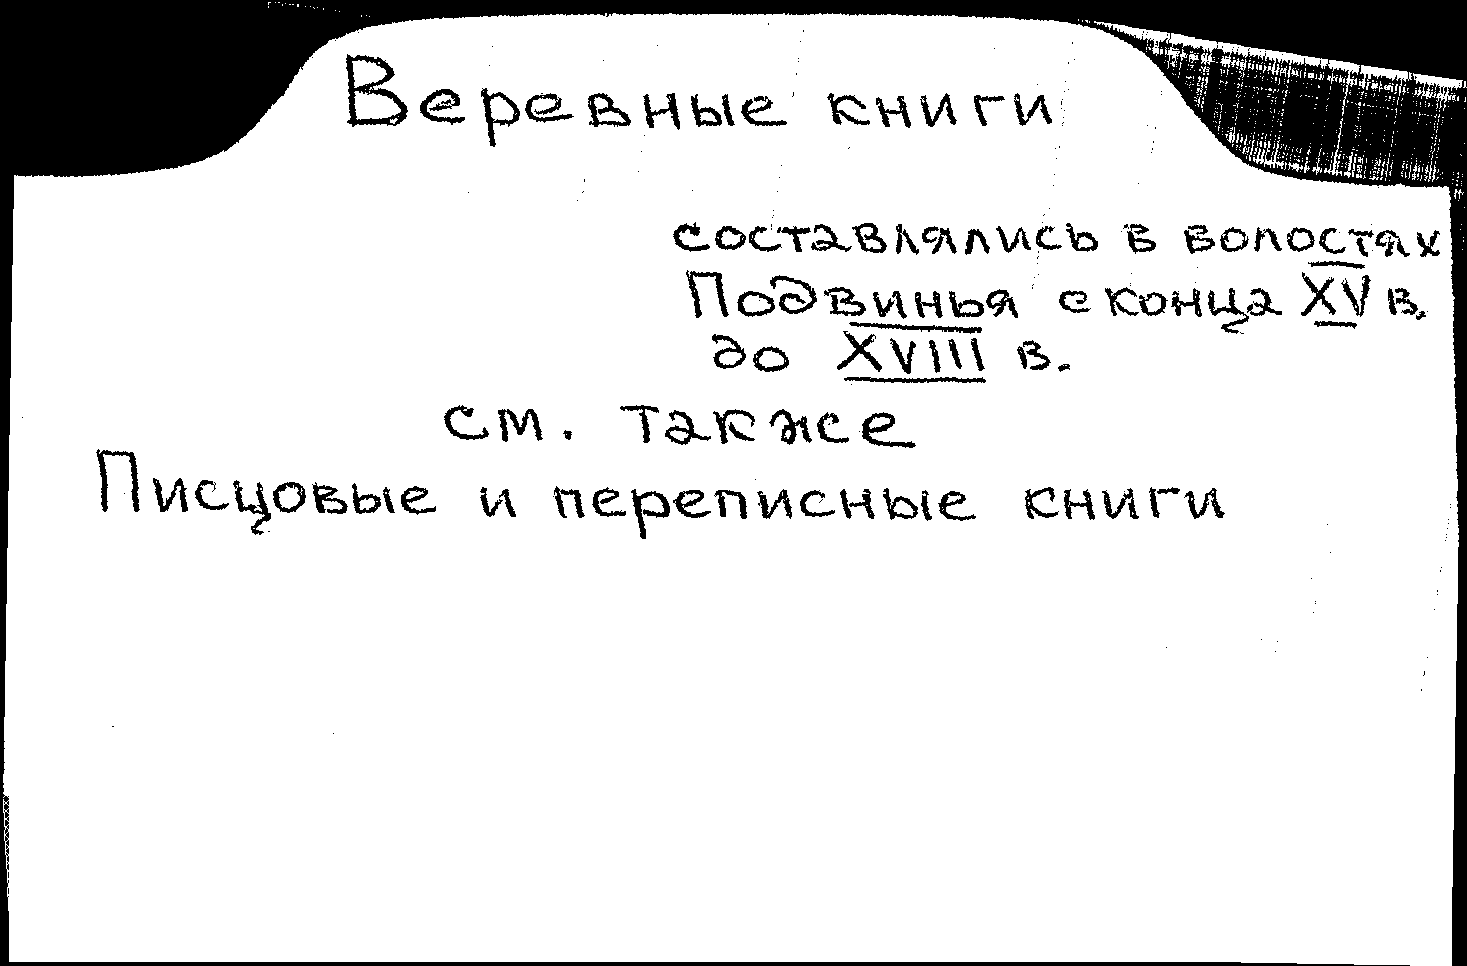 Веревные книги
составлялись в волостях
Подвинья с конца XV в.
до XVIII в.
см. также
Писцовые и переписные книги